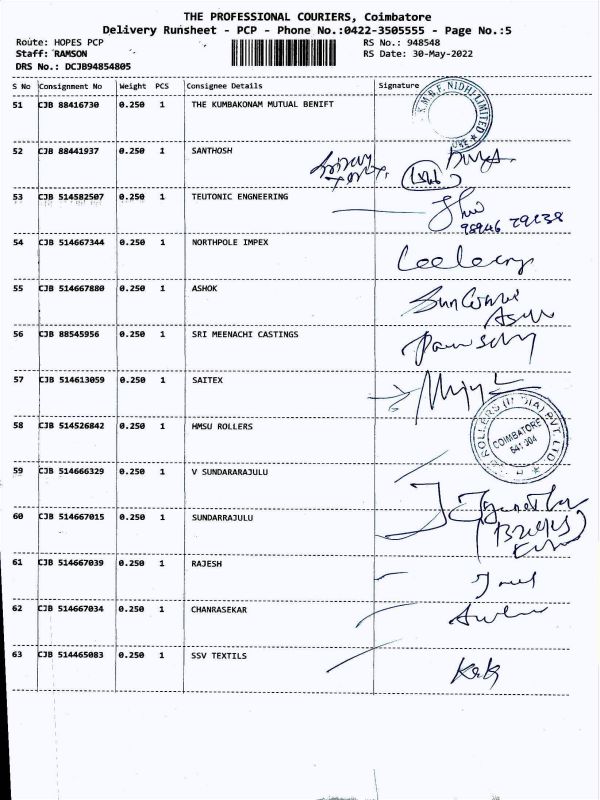 THE PROFESSIONAL COURIERS, Coimbatore
Delivery Runsheet - PCP - Phone No.:0422-3505555 - Page No.:5
Route: HOPES PCP RS No.: 948548
Staff: RAMSON RS Date: 30-May-2022
DRS No.: DCJB94854805
S No Consignment No Weight PCS Consignee Details Signature
51 CJB 88416730 0.250 1 THE KUMBAKONAM MUTUAL BENIFT
K.M.B.F. NIDHI LIMITED
52 CJB 88441937 0.250 1 SANTHOSH
53 CJB 514582507 0.250 1 TEUTONIC ENGNEERING
54 CJB 514667344 0.250 1 NORTHPOLE IMPEX
55 CJB 514667880 0.250 1 ASHOK
56 CJB 88545956 0.250 1 SRI MEENACHI CASTINGS
57 CJB 514613059 0.250 1 SAITEX
58 CJB 514526842 0.250 1 HMSU ROLLERS
ROLLERS (INDIA) PVT. LTD
COIMBATORE
641 004
59 CJB 514666329 0.250 1 V SUNDARARAJULU
60 CJB 514667015 0.250 1 SUNDARRAJULU
61 CJB 514667039 0.250 1 RAJESH
62 CJB 514667034 0.250 1 CHANRASEKAR
63 CJB 514465083 0.250 1 SSV TEXTILS